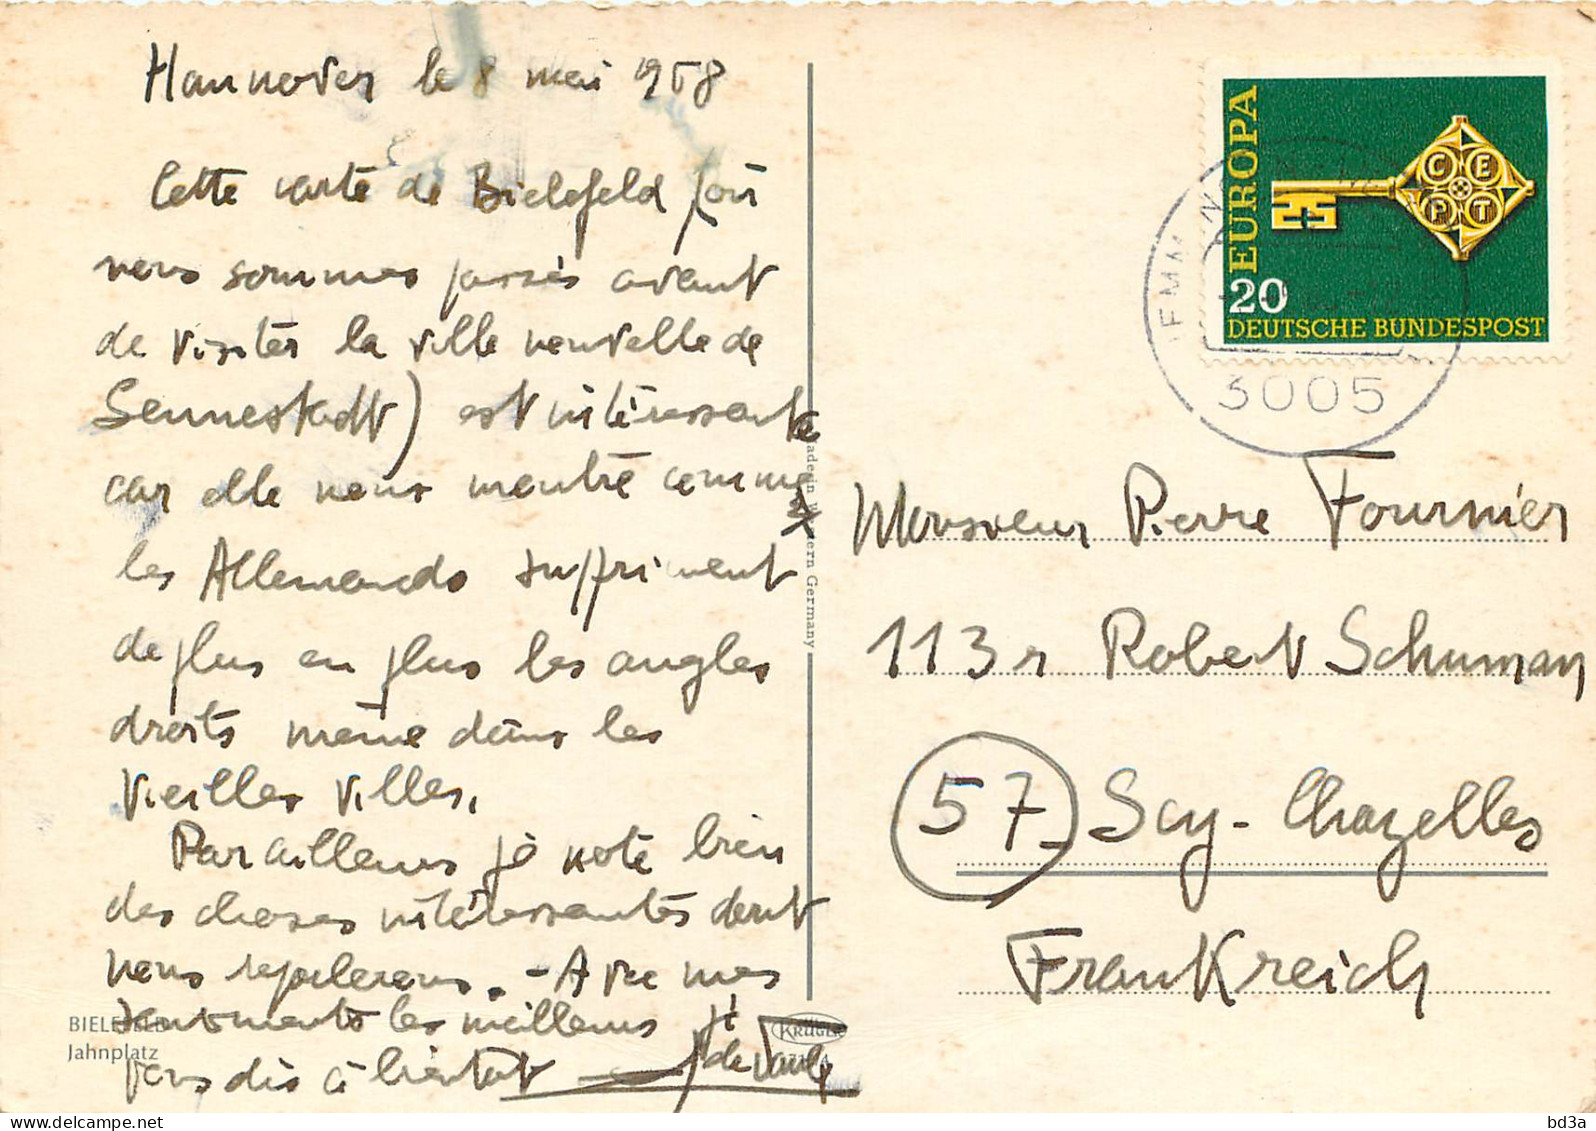 Hannover le 8 mai 1968
Cette carte de Bielefeld (où
nous sommes passés avant
de visiter la ville nouvelle de
Sennestadt) est intéressante
car elle nous montre comme
les Allemands suppriment
de plus en plus les angles
droits même dans les
vieilles villes.
Par ailleurs je note bien
des choses intéressantes dont
nous reparlerons. - Avec mes
sentiments les meilleurs je
vous dis à bientôt
BIELEFELD
Jahnplatz
Made in Western Germany
KRÜGER
EUROPA
CEPT
20
DEUTSCHE BUNDESPOST
3005
Monsieur Pierre Fournier
113 r Robert Schuman
57 - Scy-Chazelles
Frankreich
bd3a